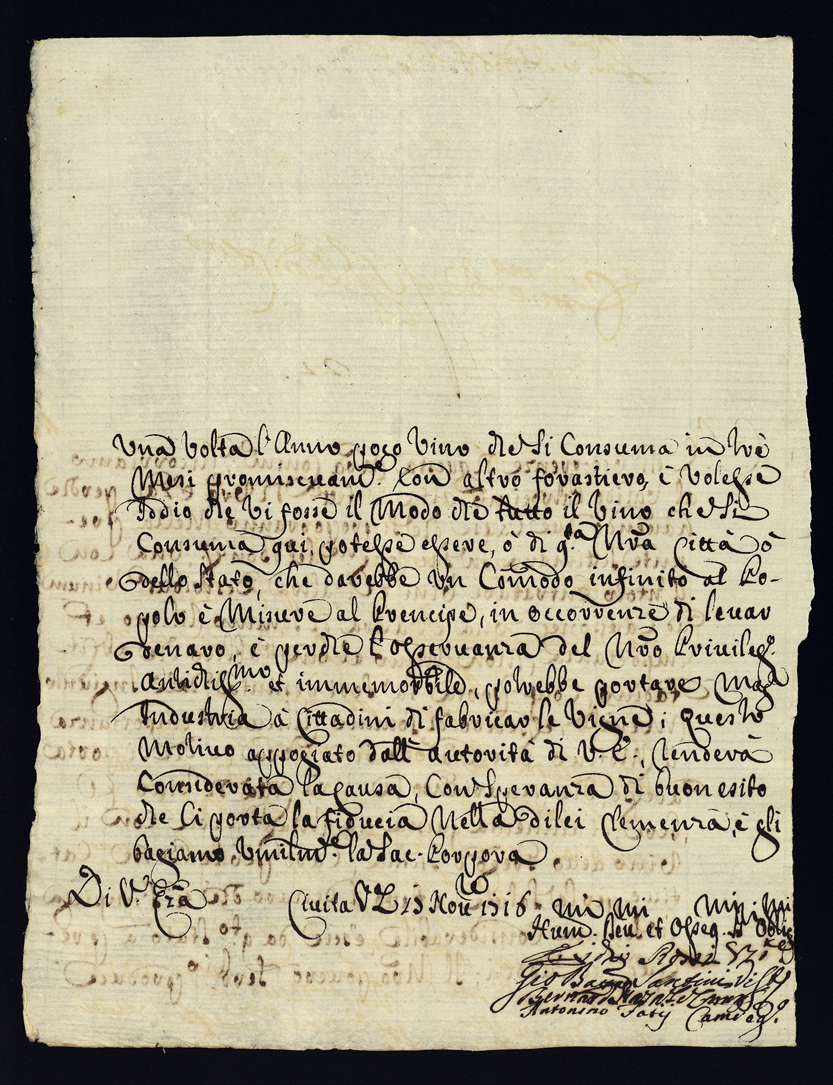 Una volta l'Anno poco Vino che si Consuma in trè
Mesi promiscuam.e Con altro forastiero, è volesse
Iddio che vi fosse il Modo che tutto il vino che si
Consuma qui potesse essere, ò di q.sta Nrã Città ò
dello Stato, che darebbe un Comodo infinito al Po-
polo è Miserè al Prencipe, in occorrenze di levar
denaro, è perche l'osservanza del Nrõ Privileg.o
Antichiss.mo et immemorbile, potrebbe portare Mag.r
Industria à Cittadini di fabricar le Vigne; questo
Motivo appogiato dall'autorità di V. E., renderà
Considerata la Causa, Con Speranza di buon esito
che si porta la fiducia Nella di lei Clemenza, è gli
baciamo Umilm.e la Sac. Porpora
Di V. Em.za Civita V.a 15 Nov.re 1716
Hum. Dev. et Osseq. Oblig.
Rossi
Gio Santini
Bernard
Antonino